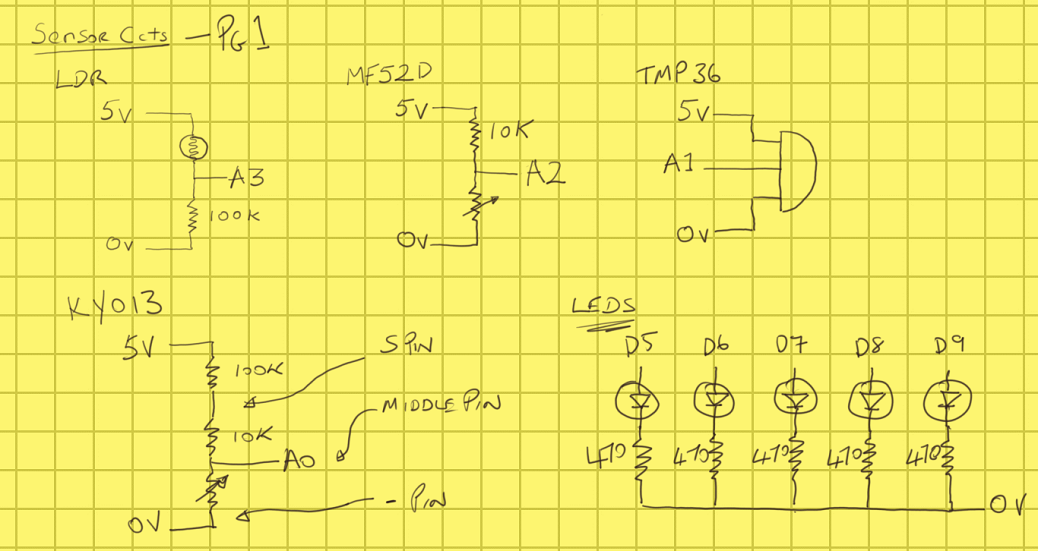 Sensor Ccts - PG1
LDR
5V
A3
100K
0V
MF52D
5V
10K
A2
0V
TMP36
5V
A1
0V
KY013
5V
100K
S PIN
10K
MIDDLE PIN
A0
- PIN
0V
LEDS
D5 D6 D7 D8 D9
470 470 470 470 470
0V